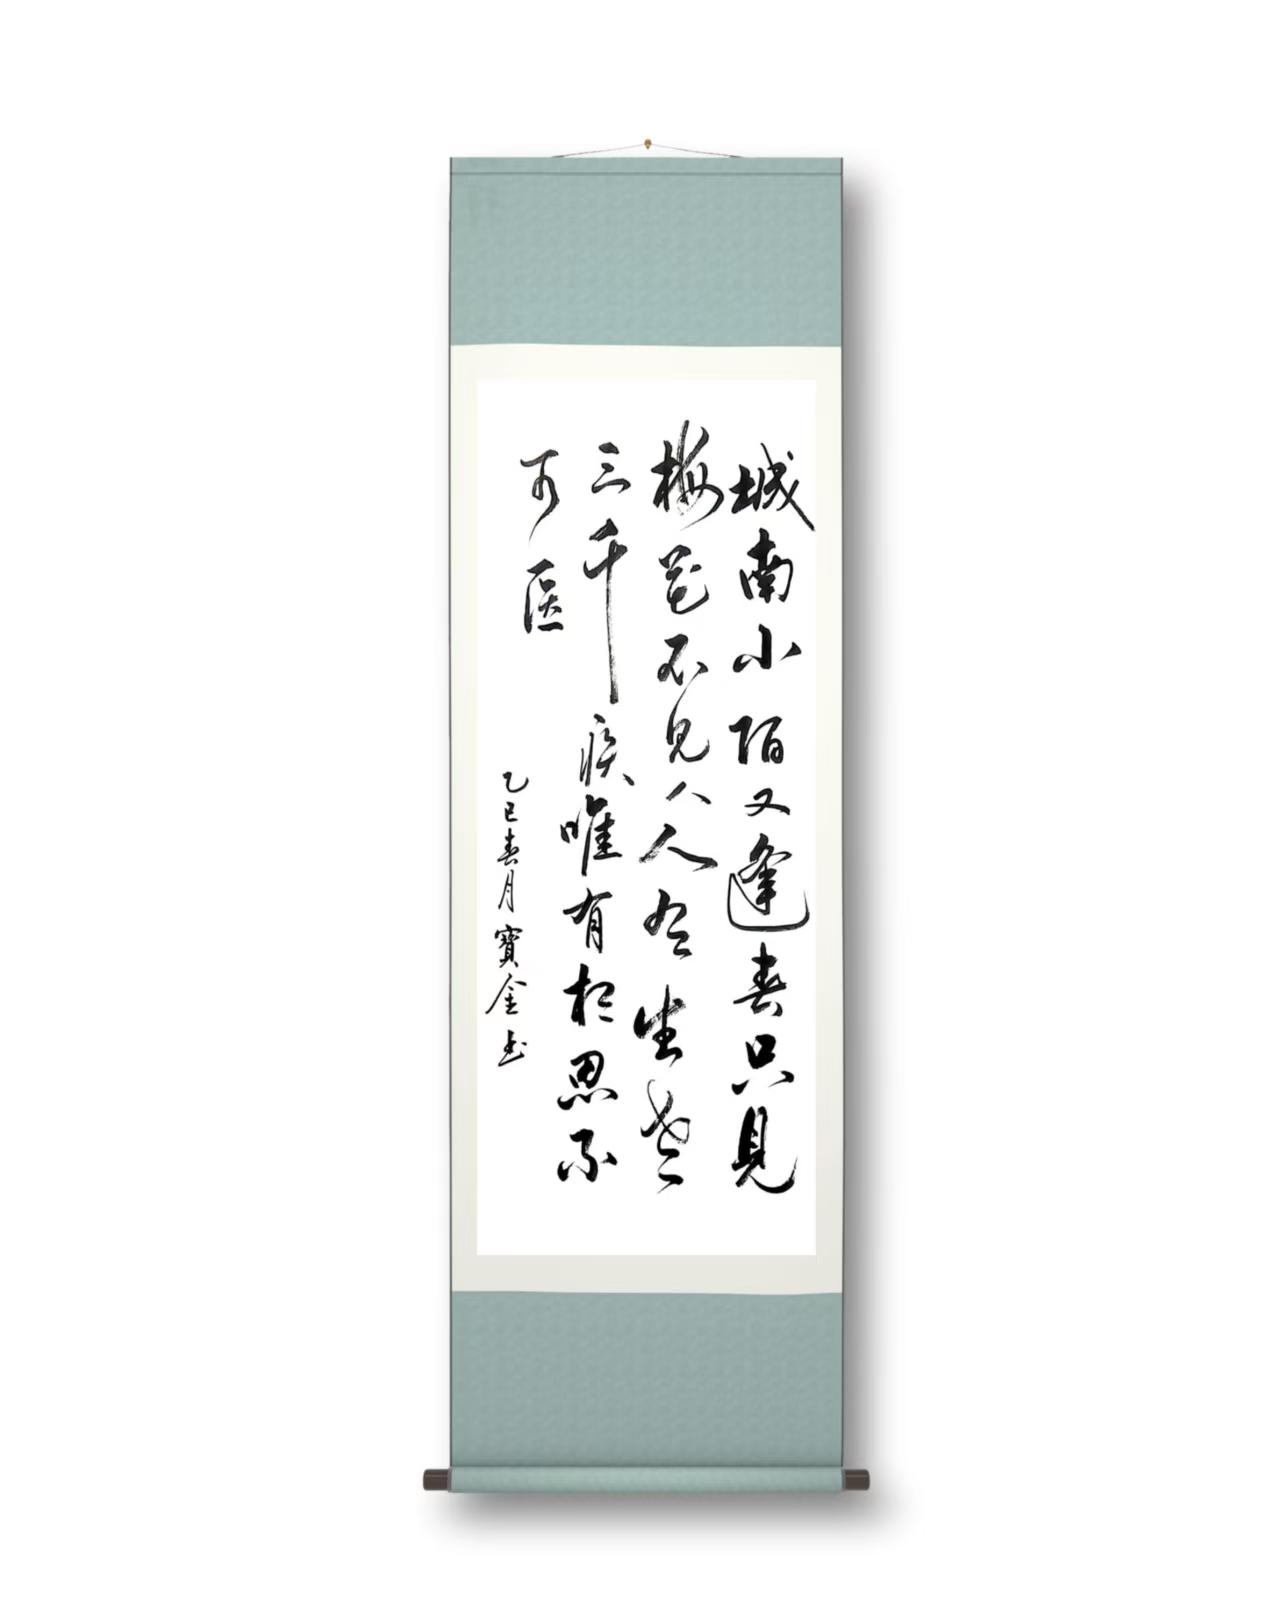 城南小陌又逢春只見
梅花不見人人有生老
三千疾唯有相思不
可医
乙巳春月寶金书